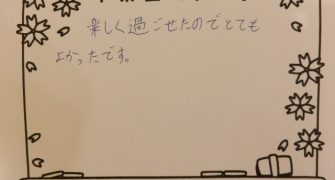 楽しく過ごせたのでとても
よかったです。